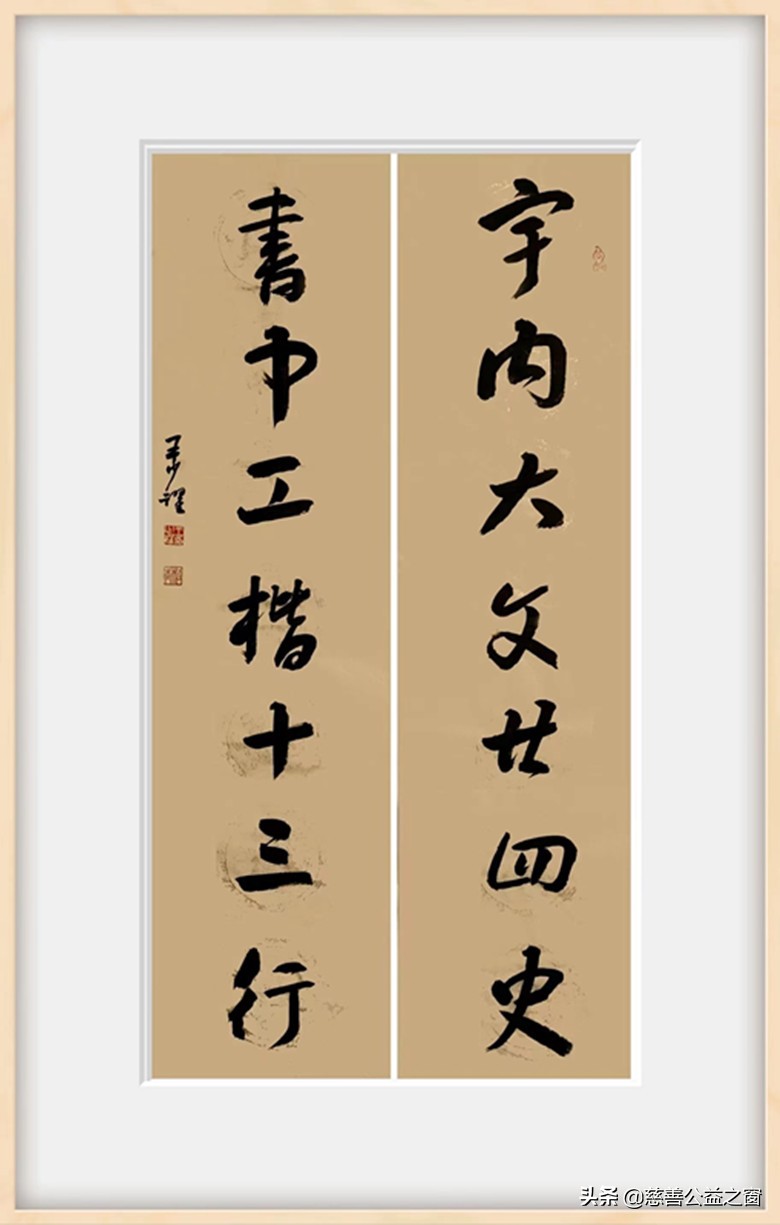 宇内大文廿四史
书中工楷十三行
头条 @慈善公益之窗